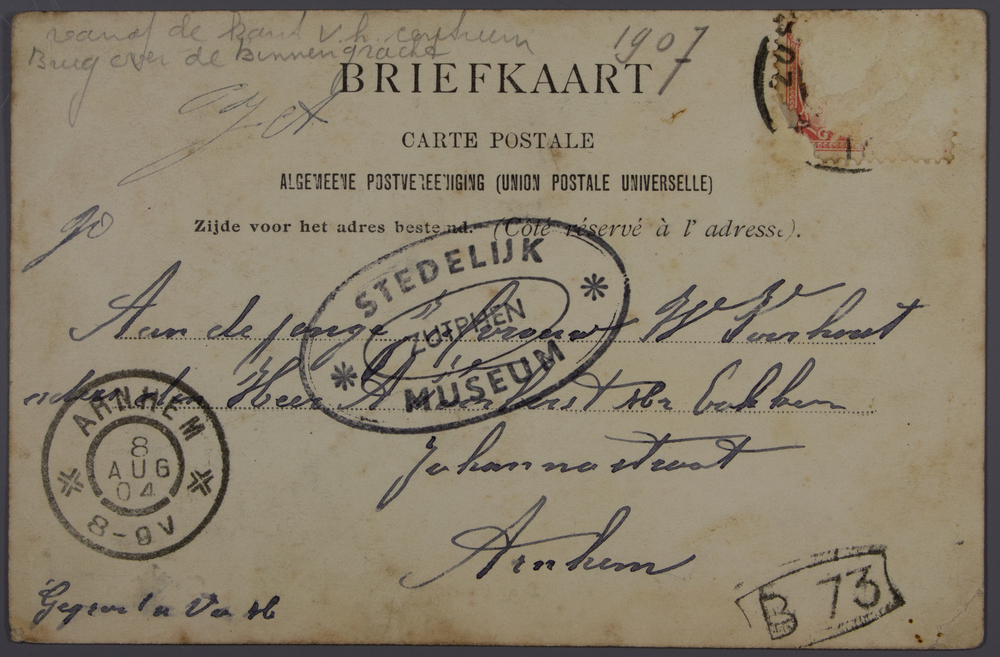 vanaf de kant v.h. 
Brug over de Binnengracht
1907
BRIEFKAART
CARTE POSTALE
ALGEMEENE POSTVEREENIGING (UNION POSTALE UNIVERSELLE)
Zijde voor het adres bestemd. (Côté réservé à l'adresse).
STEDELIJK
ZUTPHEN
MUSEUM
Aan de jonge Jufvrouw W
Heer A
Johannastraat
Arnhem
ARNHEM
8
AUG
04
8-9V
B 73